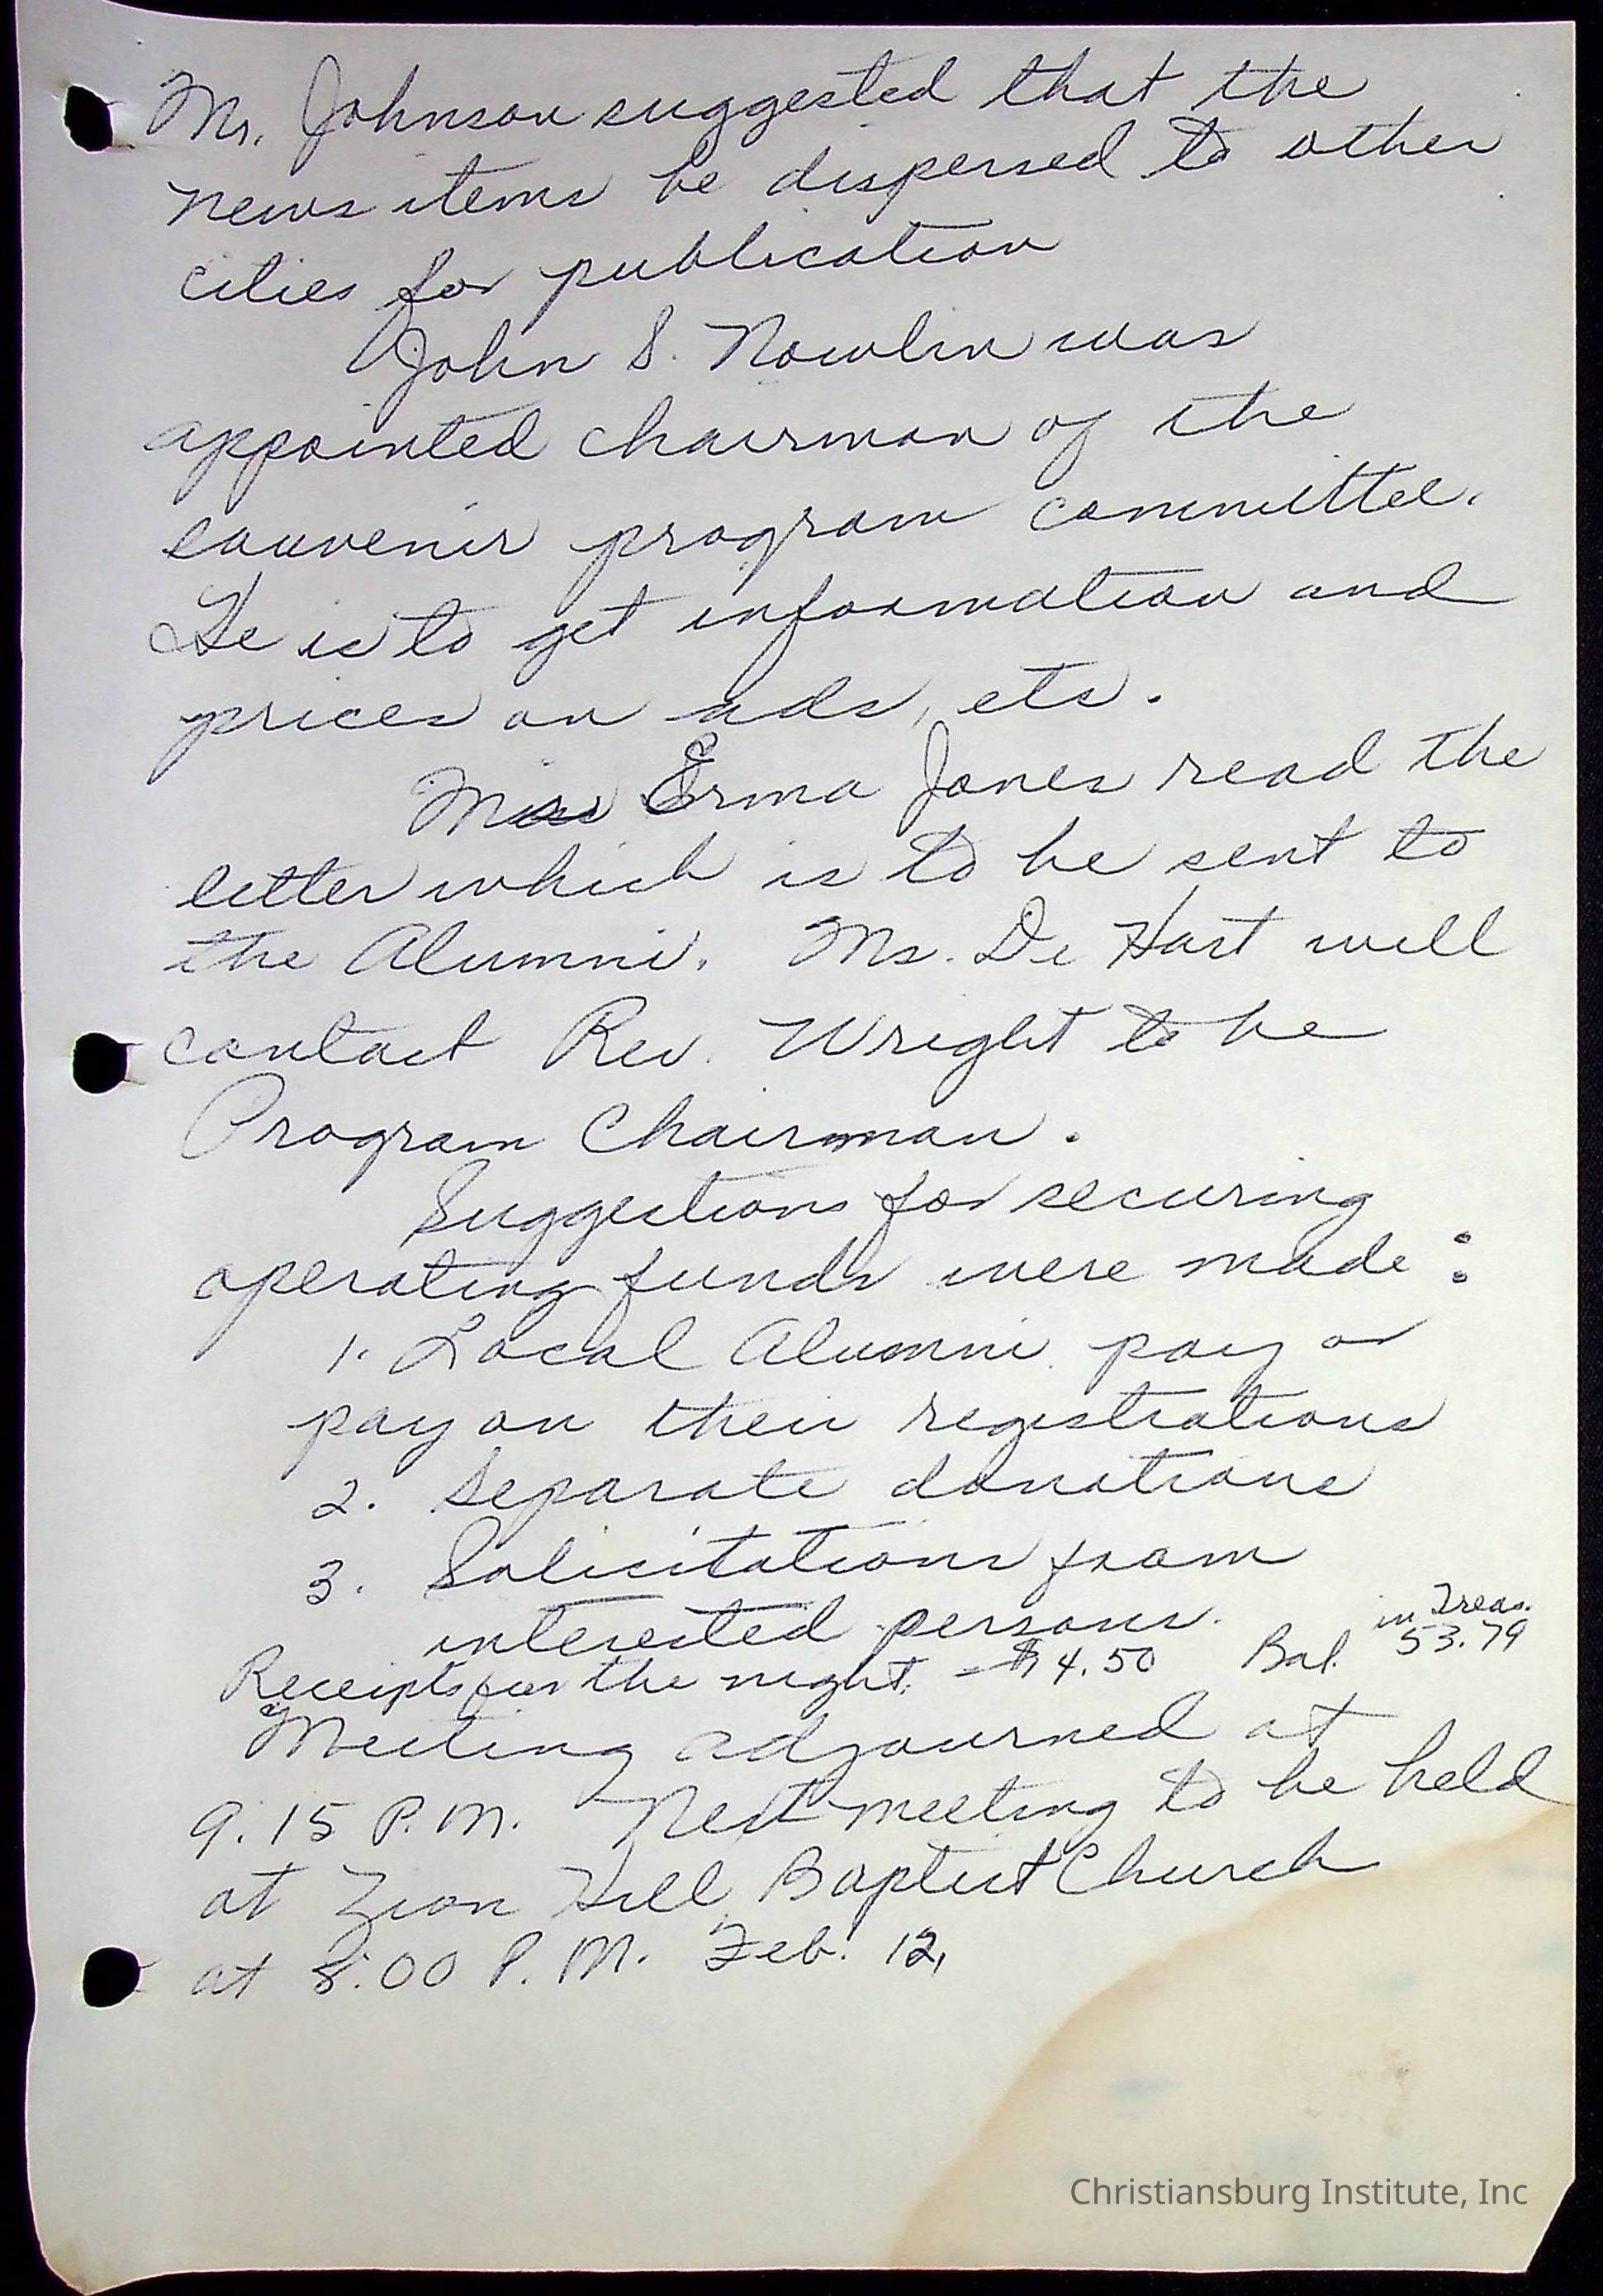 Mr. Johnson suggested that the
news items be dispersed to other
cities for publication
John S. Nowlin was
appointed chairman of the
souvenir program committee.
He is to get information and
prices on ads, etc.
Miss Erma Jones read the
letter which is to be sent to
the Alumni. Mr. De Hart will
contact Rev. Wright to be
Program Chairman.
Suggestions for securing
operating funds were made:
1. Local Alumni pay or
pay on their registrations
2. Separate donations
3. Solicitations from
interested persons.
Receipts for the night. - $4.50 Bal. in Treas. 53.79
Meeting adjourned at
9.15 P.M. Next meeting to be held
at Zion Hill Baptist Church
at 8:00 P.M. Feb. 12,
Christiansburg Institute, Inc